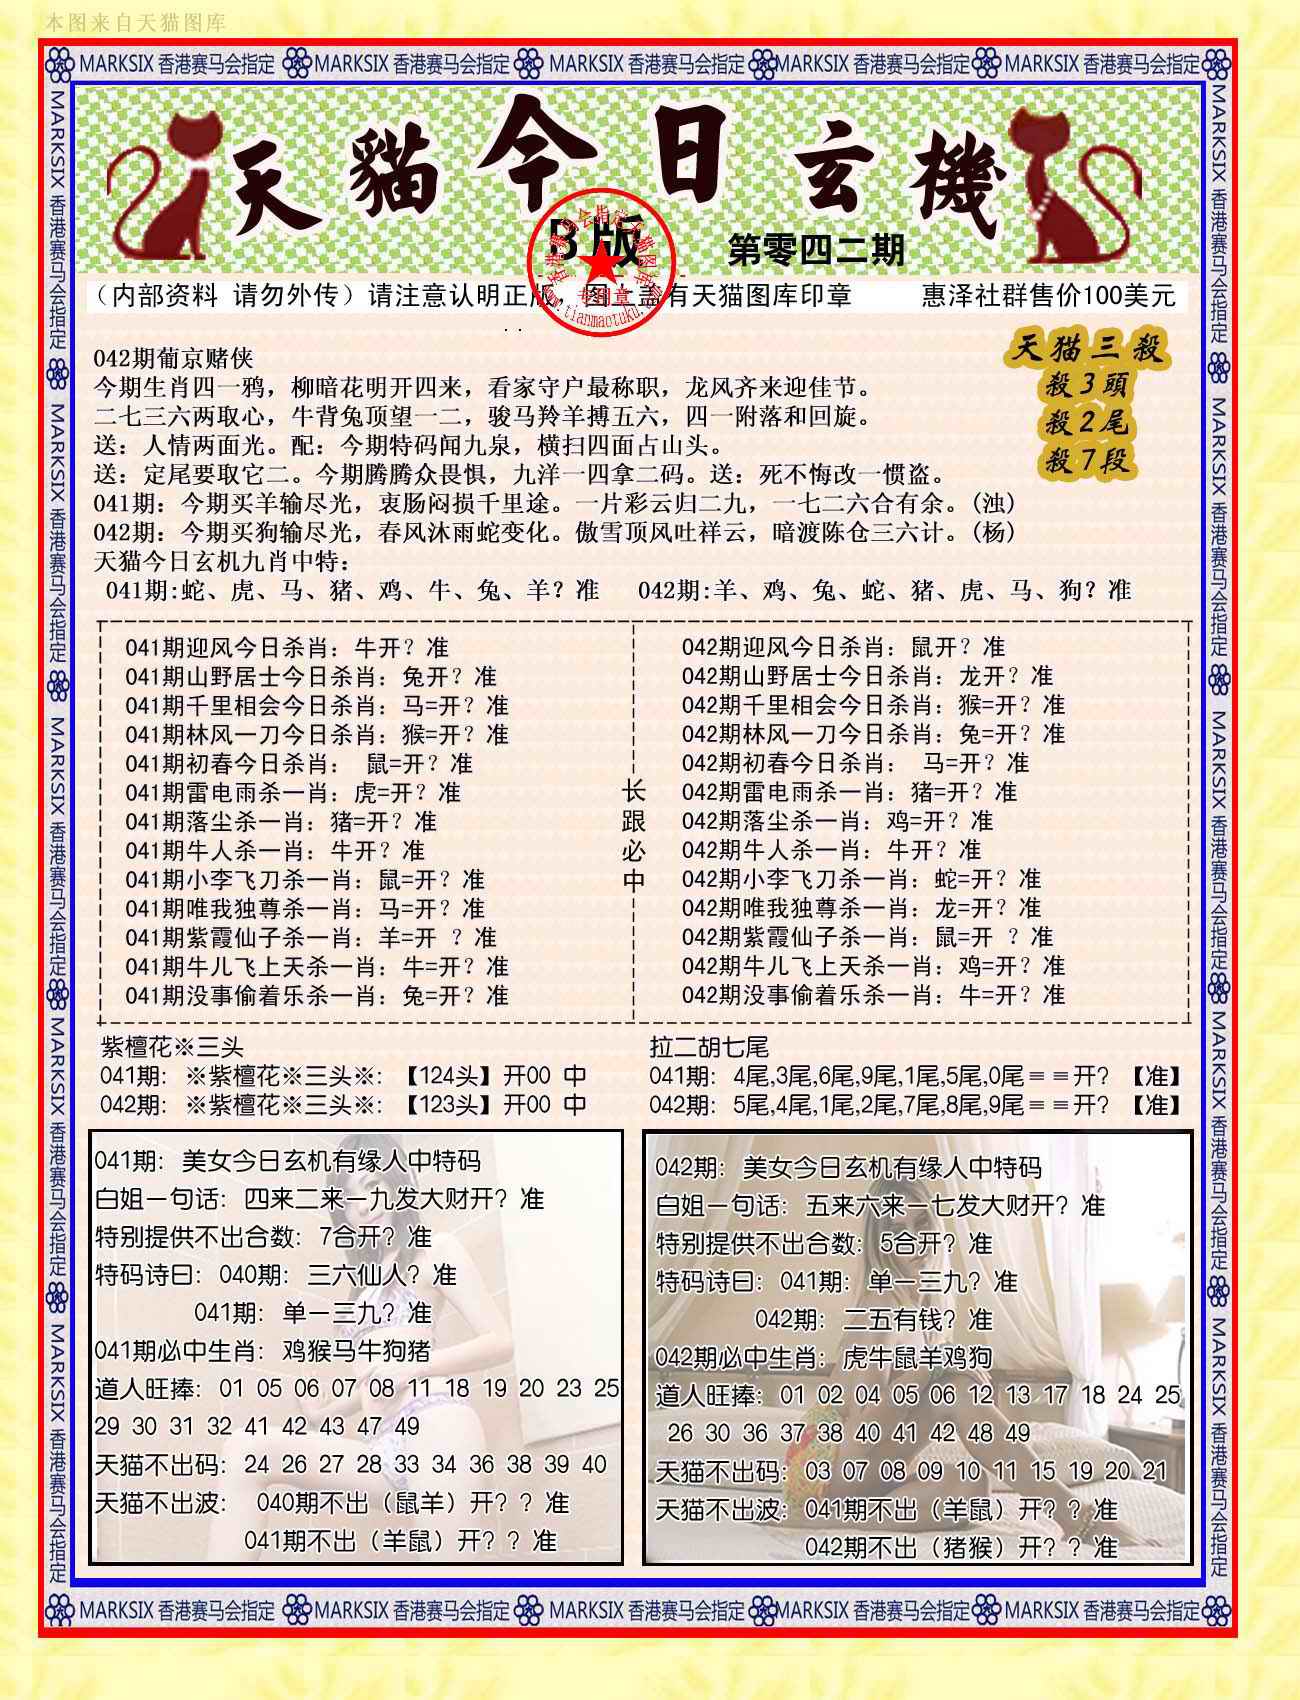 本图来自天猫图库
MARKSIX 香港赛马会指定 MARKSIX 香港赛马会指定 MARKSIX 香港赛马会指定 MARKSIX 香港赛马会指定 MARKSIX 香港赛马会指定
天貓今日玄機
B版
第零四二期
香港赛马会指定天猫图库
专用章
www.tianmaotuku.com
（内部资料 请勿外传）请注意认明正版，图上盖有天猫图库印章 惠泽社群售价100美元
天猫三殺
殺3頭
殺2尾
殺7段
042期葡京赌侠
今期生肖四一鸦，柳暗花明开四来，看家守户最称职，龙风齐来迎佳节。
二七三六两取心，牛背兔顶望一二，骏马羚羊搏五六，四一附落和回旋。
送：人情两面光。配：今期特码闻九泉，横扫四面占山头。
送：定尾要取它二。今期腾腾众畏惧，九洋一四拿二码。送：死不悔改一惯盗。
041期：今期买羊输尽光，衷肠闷损千里途。一片彩云归二九，一七二六合有余。(浊)
042期：今期买狗输尽光，春风沐雨蛇变化。傲雪顶风吐祥云，暗渡陈仓三六计。(杨)
天猫今日玄机九肖中特：
041期:蛇、虎、马、猪、鸡、牛、兔、羊？准 042期:羊、鸡、兔、蛇、猪、虎、马、狗？准
041期迎风今日杀肖：牛开？准
041期山野居士今日杀肖：兔开？准
041期千里相会今日杀肖：马=开？准
041期林风一刀今日杀肖：猴=开？准
041期初春今日杀肖： 鼠=开？准
041期雷电雨杀一肖：虎=开？准
041期落尘杀一肖：猪=开？准
041期牛人杀一肖：牛开？准
041期小李飞刀杀一肖：鼠=开？准
041期唯我独尊杀一肖：马=开？准
041期紫霞仙子杀一肖：羊=开 ？准
041期牛儿飞上天杀一肖：牛=开？准
041期没事偷着乐杀一肖：兔=开？准
长跟必中
042期迎风今日杀肖：鼠开？准
042期山野居士今日杀肖：龙开？准
042期千里相会今日杀肖：猴=开？准
042期林风一刀今日杀肖：兔=开？准
042期初春今日杀肖： 马=开？准
042期雷电雨杀一肖：猪=开？准
042期落尘杀一肖：鸡=开？准
042期牛人杀一肖：牛开？准
042期小李飞刀杀一肖：蛇=开？准
042期唯我独尊杀一肖：龙=开？准
042期紫霞仙子杀一肖：鼠=开 ？准
042期牛儿飞上天杀一肖：鸡=开？准
042期没事偷着乐杀一肖：牛=开？准
紫檀花※三头
041期：※紫檀花※三头※：【124头】开00 中
042期：※紫檀花※三头※：【123头】开00 中
拉二胡七尾
041期：4尾,3尾,6尾,9尾,1尾,5尾,0尾＝＝开？【准】
042期：5尾,4尾,1尾,2尾,7尾,8尾,9尾＝＝开？【准】
041期：美女今日玄机有缘人中特码
白姐一句话：四来二来一九发大财开？准
特别提供不出合数：7合开？准
特码诗曰：040期：三六仙人？准
041期：单一三九？准
041期必中生肖：鸡猴马牛狗猪
道人旺捧：01 05 06 07 08 11 18 19 20 23 25
29 30 31 32 41 42 43 47 49
天猫不出码：24 26 27 28 33 34 36 38 39 40
天猫不出波： 040期不出（鼠羊）开？？准
041期不出（羊鼠）开？？准
042期：美女今日玄机有缘人中特码
白姐一句话：五来六来一七发大财开？准
特别提供不出合数：5合开？准
特码诗曰：041期：单一三九？准
042期：二五有钱？准
042期必中生肖：虎牛鼠羊鸡狗
道人旺捧：01 02 04 05 06 12 13 17 18 24 25
26 30 36 37 38 40 41 42 48 49
天猫不出码：03 07 08 09 10 11 15 19 20 21
天猫不出波：041期不出（羊鼠）开？？准
042期不出（猪猴）开？？准
MARKSIX 香港赛马会指定 MARKSIX 香港赛马会指定 MARKSIX 香港赛马会指定 MARKSIX 香港赛马会指定 MARKSIX 香港赛马会指定
MARKSIX 香港赛马会指定 MARKSIX 香港赛马会指定 MARKSIX 香港赛马会指定 MARKSIX 香港赛马会指定 MARKSIX 香港赛马会指定
MARKSIX 香港赛马会指定 MARKSIX 香港赛马会指定 MARKSIX 香港赛马会指定 MARKSIX 香港赛马会指定 MARKSIX 香港赛马会指定